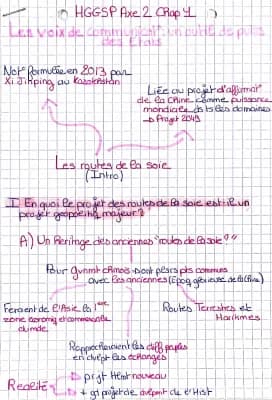 HGGSP Axe 2 Chap 1
Les voix de communicat°: un outil de puiss
des Etats
Not° formulée en 2013 par
Xi Jinping au Kazakhstan
Liée au projet d'affirmat°
de la Chine comme puissance
mondiale ds ts les domaines
→ Projet 2049
Les routes de la soie
(Intro)
I En quoi le projet des routes de la soie est-il un
projet géopolitiq majeur?
A) Un héritage des anciennes "routes de la soie"
Pour gvnmt chinois → ont plsrs pts communs
avec les anciennes
Feraient de l'Asie la 1ère
zone économiq et commerciale
du mde
Routes Terrestres et
Maritimes
Rapprocheraient les diff peuples
en dvlpt les échanges
Réalité
prjt nouveau
+ gd projet de dvlpmt de l'Hist